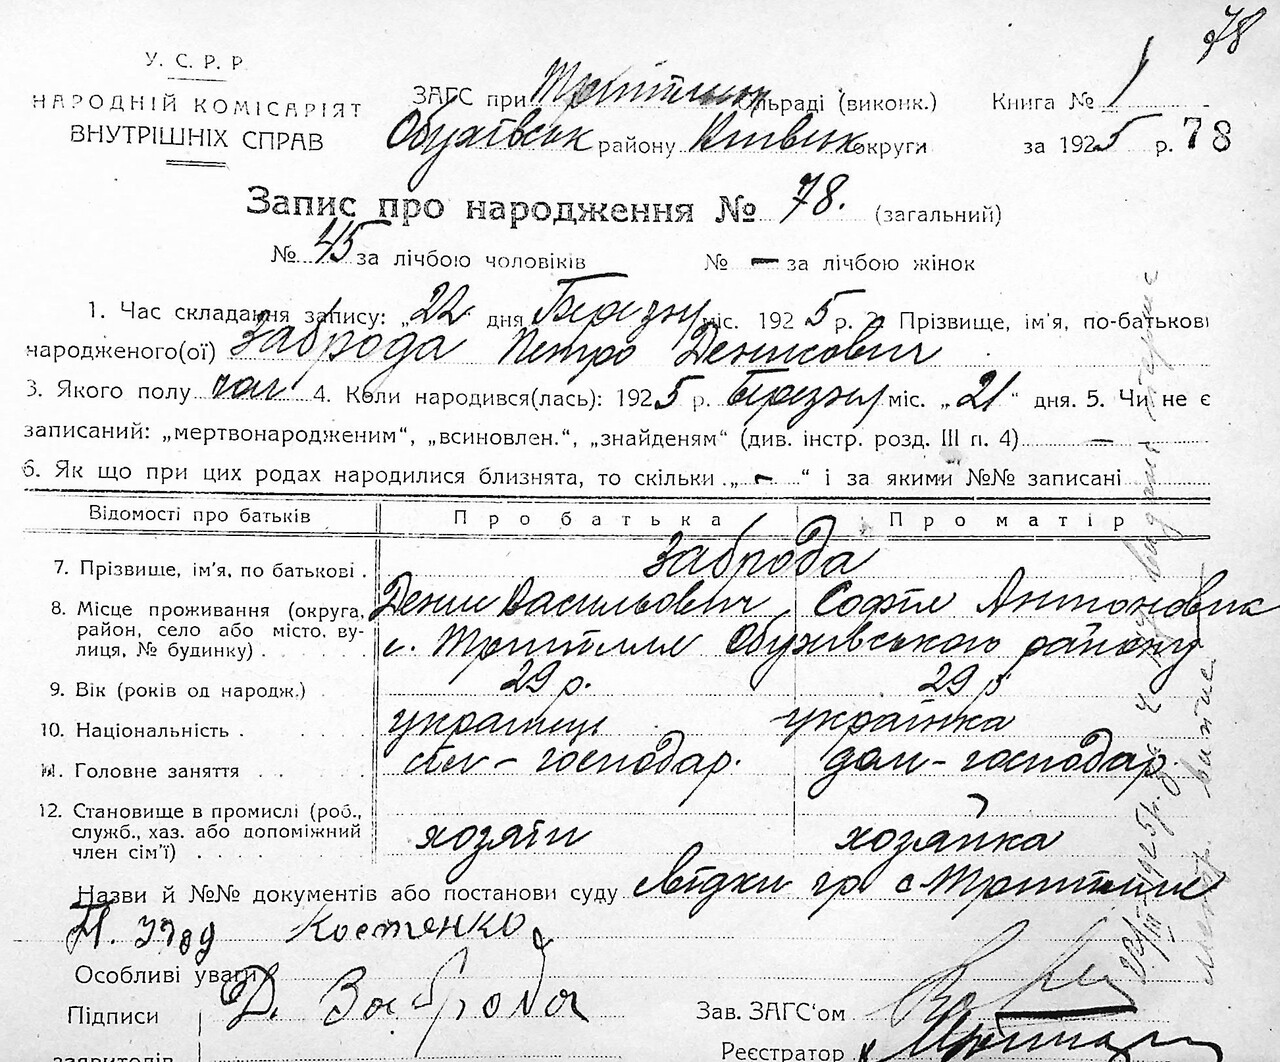 78
У. С. Р. Р.
НАРОДНІЙ КОМІСАРІЯТ
ВНУТРІШНІХ СПРАВ
ЗАГС при сільраді (виконк.) Книга № 1
Обухівськ району Київськ округи за 1925 р. 78
Запис про народження № 78. (загальний)
№ 45 за лічбою чоловіків № — за лічбою жінок
1. Час складання запису: „22 дня Березня міс. 1925 р. 2. Прізвище, ім'я, по-батькові
народженого(ої) Заброда Петро Денисович
3. Якого полу чол 4. Коли народився(лась): 1925 р. Березня міс. „21“ дня. 5. Чи не є
записаний: „мертвонародженим“, „всиновлен.“, „знайденям“ (див. інстр. розд. III п. 4) —
6. Як що при цих родах народилися близнята, то скільки „ - “ і за якими №№ записані
Відомості про батьків Про батька Про матір
7. Прізвище, ім'я, по батькові . Заброда
Денис Васильович Софія Антоновна
8. Місце проживання (округа, район, село або місто, вулиця, № будинку) с. Трипілля Обухівського району
9. Вік (років од народж.) 29 р. 29 р
10. Національність українець українка
11. Головне заняття сіл - господар. дом - господар
12. Становище в промислі (роб., служб., хаз. або допоміжний член сім'ї) хозяїн хозяйка
Назви й №№ документів або постанови суду свідки гр. с. Трипілля
Костенко
Особливі уваги
Підписи Д. Заброда Зав. ЗАГС'ом
заявителів Реєстратор